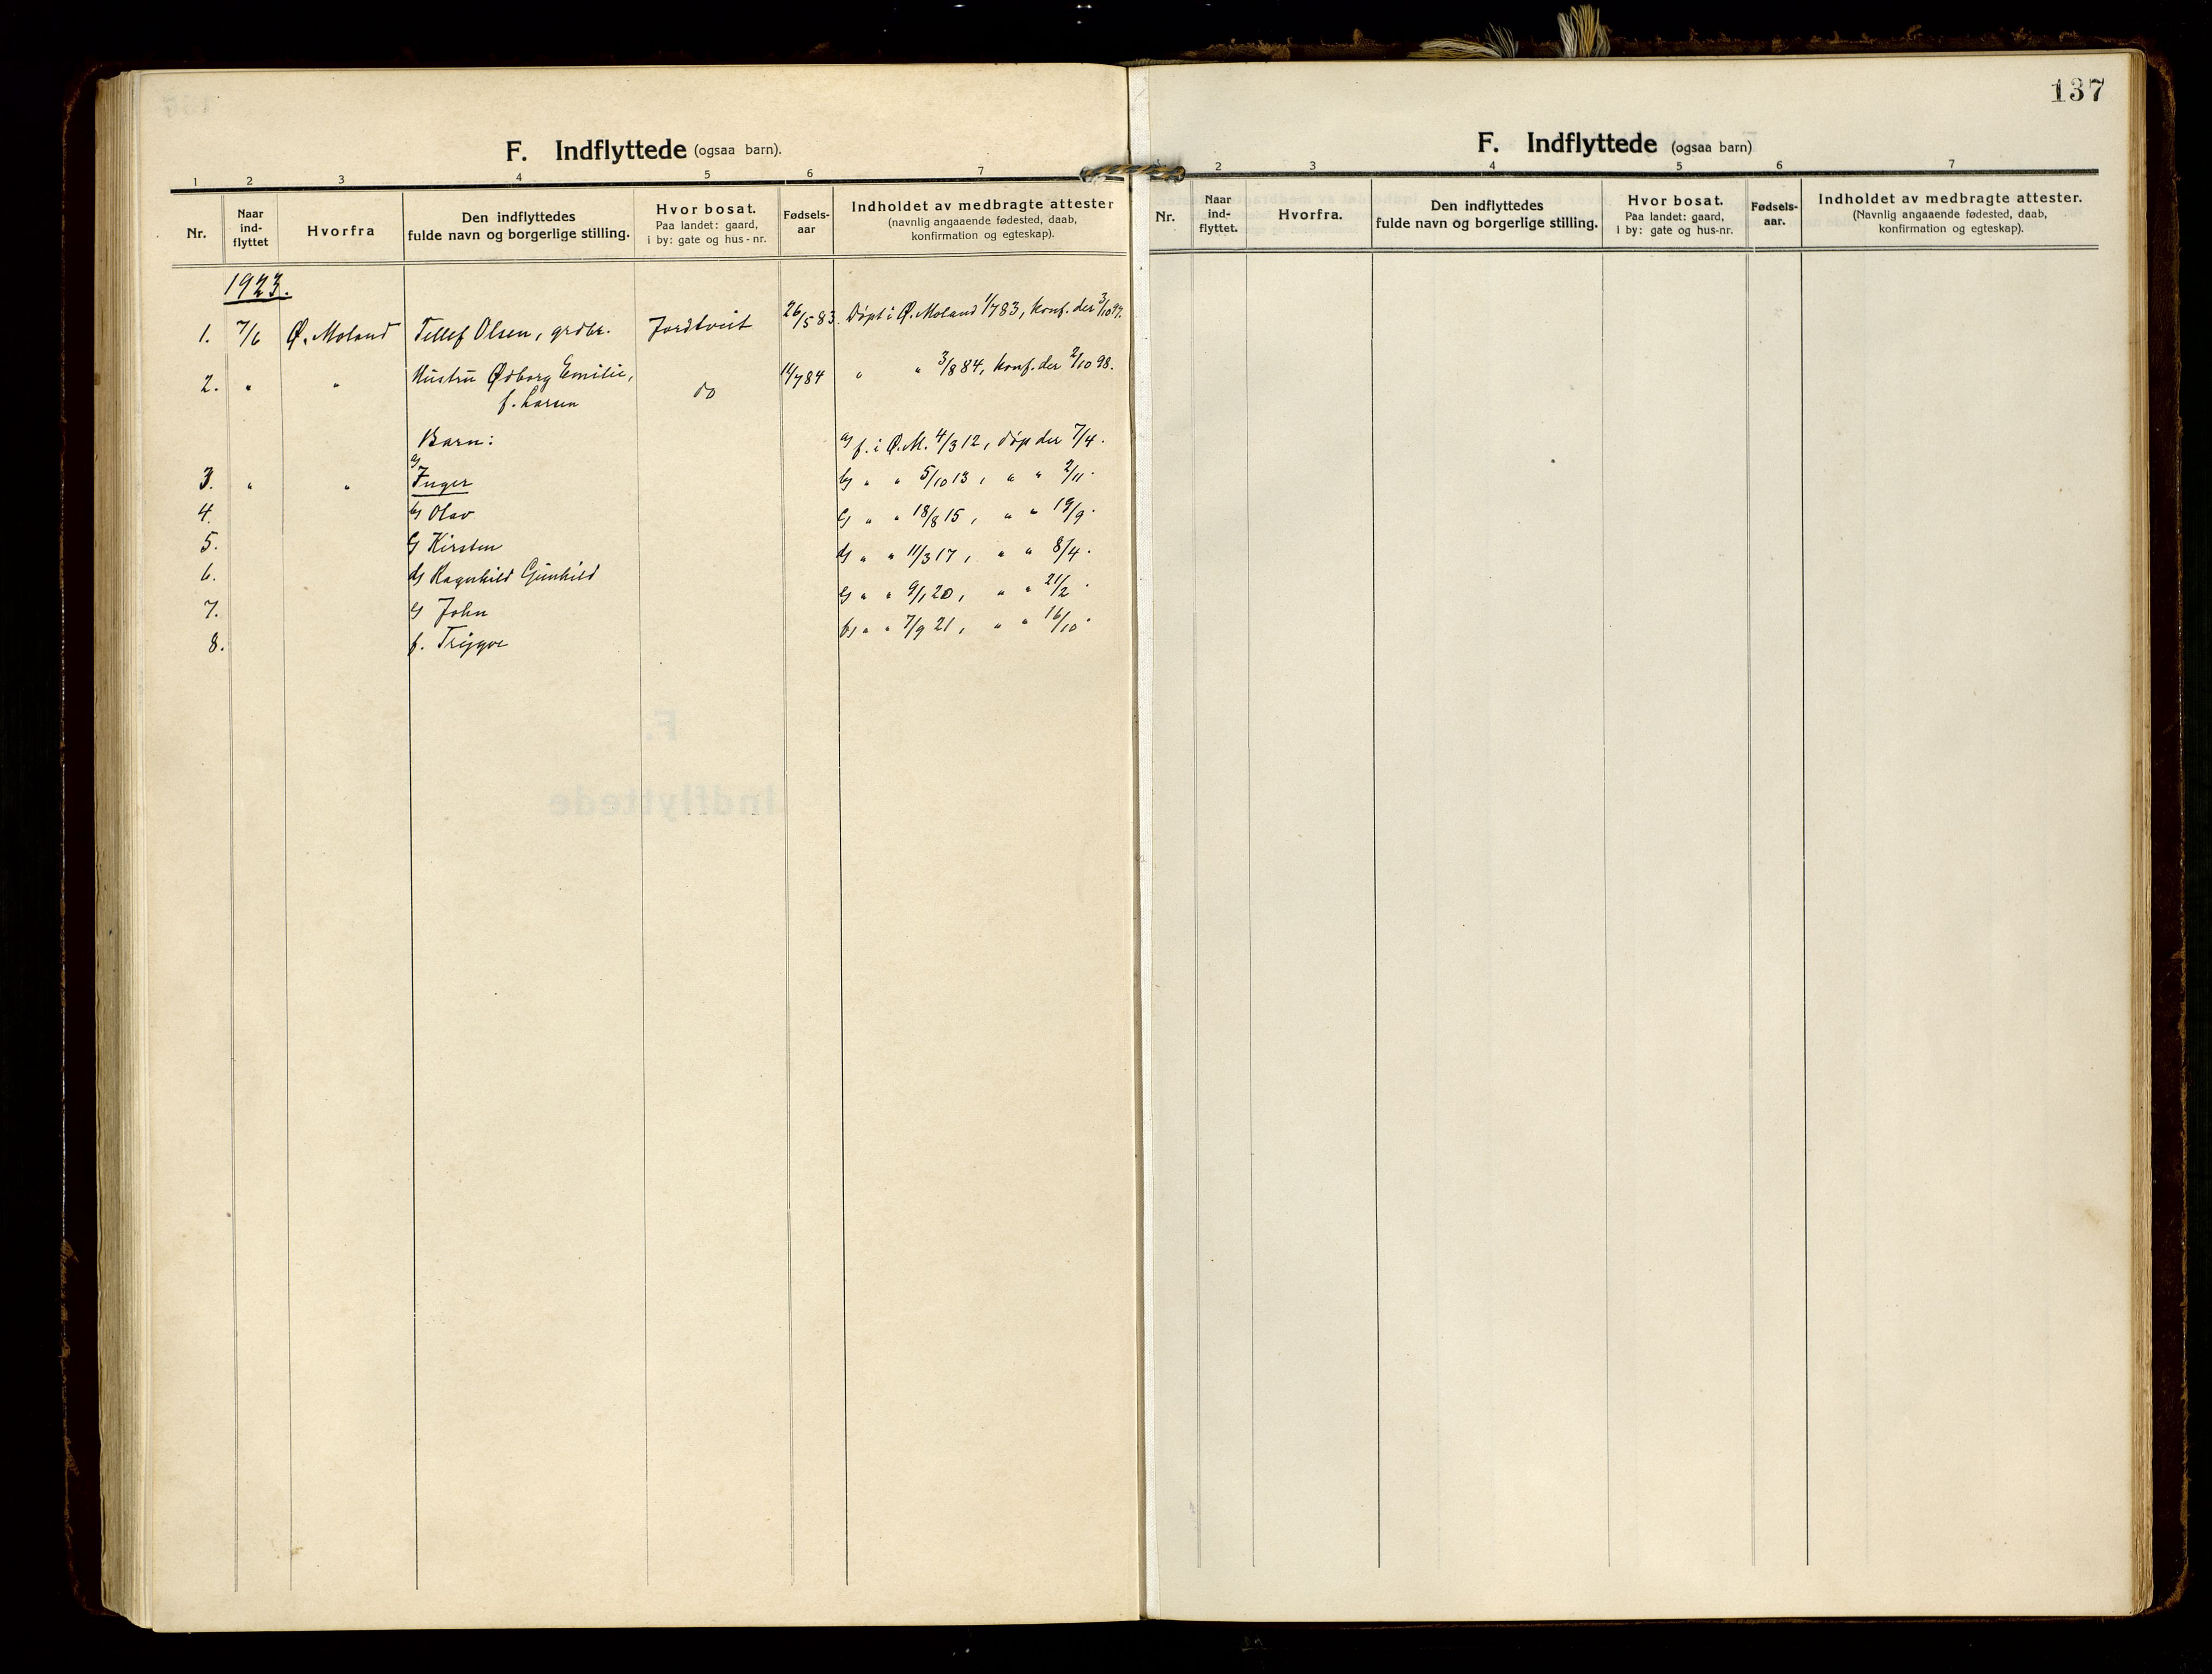 137
F. Indflyttede (ogsaa barn).
1 2 3 4 5 6 7
Nr. Naar ind-flyttet Hvorfra Den indflyttedes fulde navn og borgerlige stilling. Hvor bosat. Paa landet: gaard, i by: gate og hus-nr. Fødsels-aar Indholdet av medbragte attester (navnlig angaaende fødested, daab, konfirmation og egteskap).
1923.
1. 7/6 Ø. Moland Tellef Olsen, grdbr. Jordtveit 26/5 83. Døpt i Ø. Moland 1/7 83, konf. der 3/10 97.
2. " " Hustru Ødborg Emilie, 14/7 84 " " 3/8 84, konf. der 2/10 98.
f. Larsen do
Barn: a) f. i Ø.M. 4/3 12, døp der 7/4.
3. " " a) Inger b) " " 5/10 13, " " 2/11.
4. b) Olav c) " " 18/8 15, " " 19/9.
5. c) Kirsten d) " " 11/3 17, " " 8/4.
6. d) Ragnhild Gunhild e) " " 9/1 20, " " 21/2.
7. e) John f) " " 7/9 21, " " 16/10.
8. f. Trygve
F. Indflyttede (ogsaa barn)
2 3 4 5 6 7
Nr. Naar ind-flyttet. Hvorfra. Den indflyttedes fulde navn og borgerlige stilling. Hvor bosat. Paa landet: gaard, i by: gate og hus-nr. Fødsels-aar. Indholdet av medbragte attester. (Navnlig angaaende fødested, daab, konfirmation og egteskap).